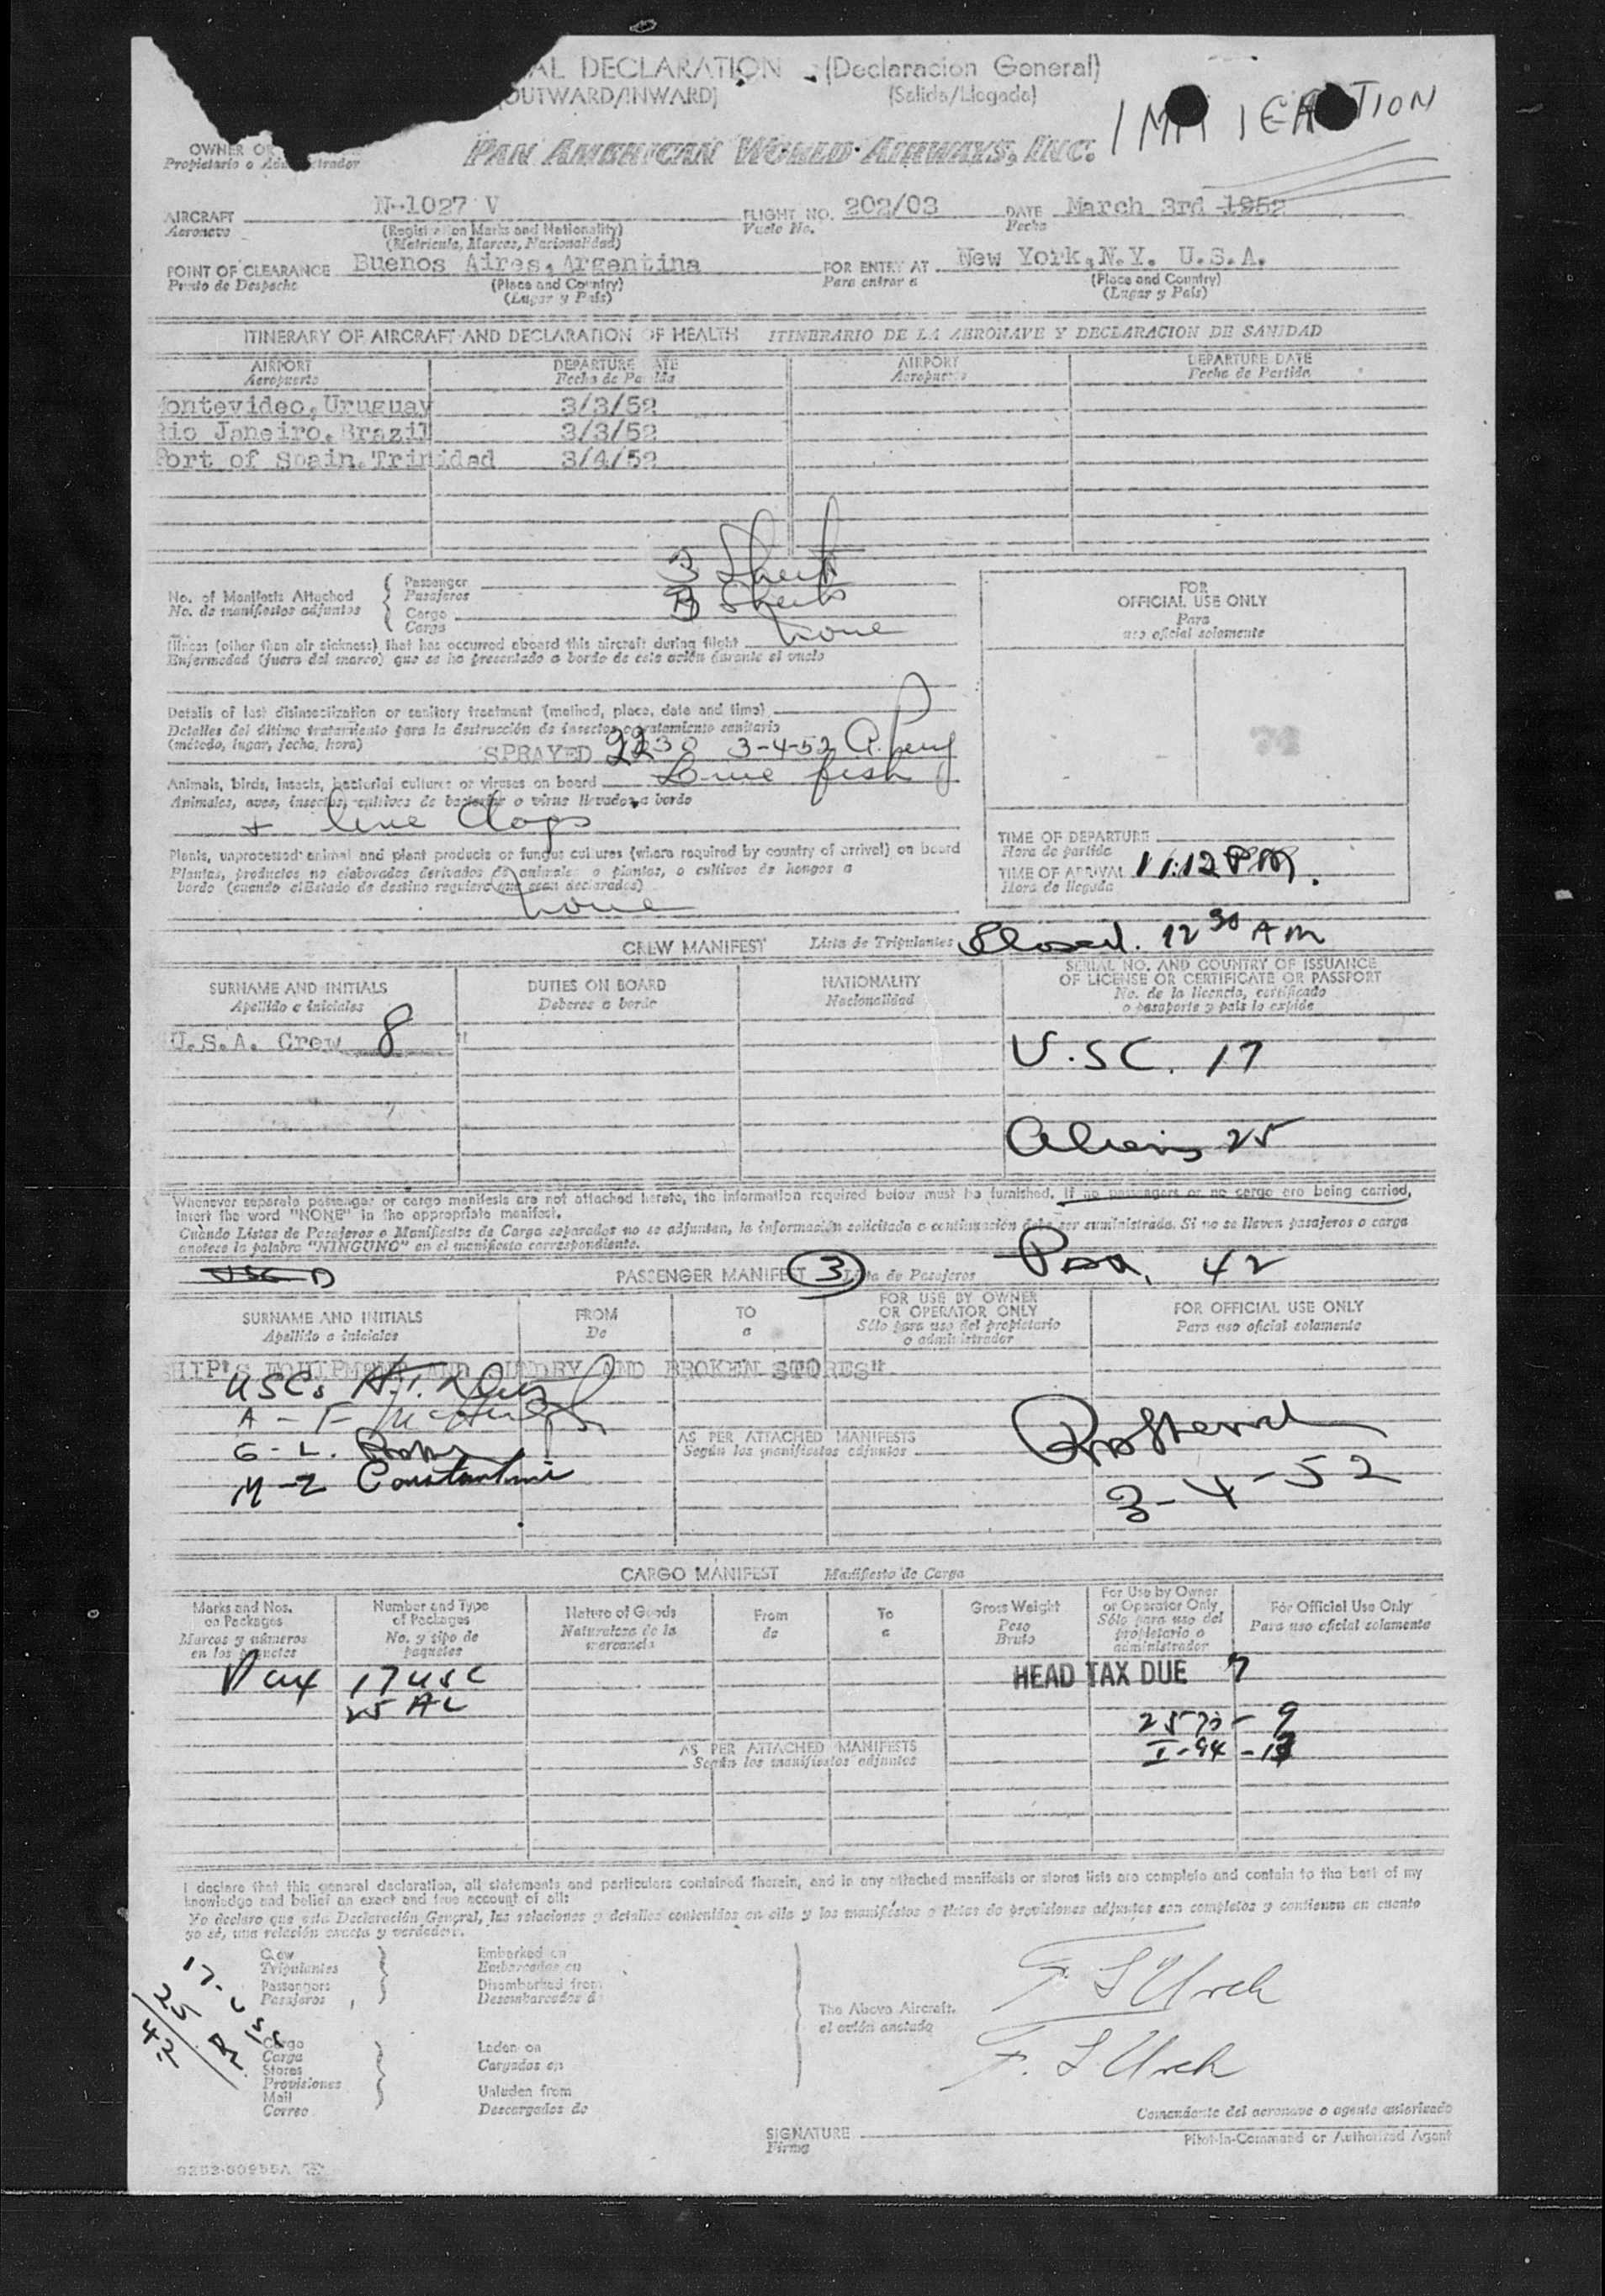 AL DECLARATION (Declaracion General)
(OUTWARD/INWARD) (Salida/Llegada)
OWNER OR
Propietario o
PAN AMERICAN WORLD AIRWAYS, INC.
AIRCRAFT N-1027 V FLIGHT NO. 202/03 DATE March 3rd 1952
Aeronave (Registration Marks and Nationality) Vuelo No. Fecha
(Matricula, Marcas, Nacionalidad)
POINT OF CLEARANCE Buenos Aires, Argentina FOR ENTRY AT New York, N.Y. U.S.A.
Punto de Despacho (Place and Country) Para entrar a (Place and Country)
(Lugar y País) (Lugar y País)
ITINERARY OF AIRCRAFT AND DECLARATION OF HEALTH ITINERARIO DE LA AERONAVE Y DECLARACION DE SANIDAD
AIRPORT DEPARTURE DATE AIRPORT DEPARTURE DATE
Aeropuerto Fecha de Partida Aeropuerto Fecha de Partida
Montevideo, Uruguay 3/3/52
Rio Janeiro, Brazil 3/3/52
Port of Spain, Trinidad 3/4/52
No. of Manifests Attached Passenger 3 Sheets
No. de manifiestos adjuntos Pasajeros
Cargo Sheets
Carga
Illness (other than air sickness) that has occurred aboard this aircraft during flight None
Enfermedad (fuera del mareo) que se ha presentado a bordo de este avión durante el vuelo
Details of last disinsectization or sanitary treatment (method, place, date and time)
Detalles del último tratamiento para la destrucción de insectos o tratamiento sanitario
(método, lugar, fecha, hora) SPRAYED 2230 3-4-52
Animals, birds, insects, bacterial cultures or viruses on board fish
Animales, aves, insectos, cultivos de bacterias o virus llevados a bordo
+ live dogs
Plants, unprocessed animal and plant products or fungus cultures (where required by country of arrival) on board
Plantas, productos no elaborados derivados de animales o plantas, o cultivos de hongos a
bordo (cuando el Estado de destino requiera que sean declarados)
None
FOR
OFFICIAL USE ONLY
Para
uso oficial solamente
TIME OF DEPARTURE
Hora de partida
TIME OF ARRIVAL 11:12 PM.
Hora de llegada
CREW MANIFEST Lista de Tripulantes Closed. 12 30 AM
SURNAME AND INITIALS DUTIES ON BOARD NATIONALITY SERIAL NO. AND COUNTRY OF ISSUANCE
OF LICENSE OR CERTIFICATE OR PASSPORT
Apellido e iniciales Deberes a bordo Nacionalidad No. de la licencia, certificado
o pasaporte y país lo expide
U.S.A. Crew 8 "
U.SC. 17
Aliens 25
Whenever separate passenger or cargo manifests are not attached hereto, the information required below must be furnished. If no passengers or no cargo are being carried,
insert the word "NONE" in the appropriate manifest.
Cuando Listas de Pasajeros o Manifiestos de Carga separados no se adjuntan, la información solicitada a continuación debe ser suministrada. Si no se llevan pasajeros o carga
anotese la palabra "NINGUNO" en el manifiesto correspondiente.
PASSENGER MANIFEST 3 Lista de Pasajeros 42
SURNAME AND INITIALS FROM TO FOR USE BY OWNER OR OPERATOR ONLY FOR OFFICIAL USE ONLY
Apellido e iniciales De a Sólo para uso del propietario o administrador Para uso oficial solamente
SHIP'S EQUIPMENT AND SUNDRY AND BROKEN STORES"
USCs
A - F
G - L.
M - Z Constantini
AS PER ATTACHED MANIFESTS
Según los manifiestos adjuntos
3-4-52
CARGO MANIFEST Manifiesto de Carga
Marks and Nos. on Packages Number and Type of Packages Nature of Goods From To Gross Weight For Use by Owner or Operator Only For Official Use Only
Marcas y números en los paquetes No. y tipo de paquetes Naturaleza de la mercancía de a Peso Bruto Sólo para uso del propietario o administrador Para uso oficial solamente
Pax 17 USC HEAD TAX DUE 7
25 AL
- 9
I-94 - 13
AS PER ATTACHED MANIFESTS
Según los manifiestos adjuntos
I declare that this general declaration, all statements and particulars contained therein, and in any attached manifest or stores lists are complete and contain to the best of my
knowledge and belief an exact and true account of all:
Yo declaro que esta Declaración General, las relaciones y detalles contenidos en ella y los manifiestos o listas de provisiones adjuntos son completos y contienen en cuanto
yo sé, una relación exacta y verdadera.
Crew Embarked on
Tripulantes Embarcados en
Passengers Disembarked from
Pasajeros Desembarcados de
17 - USC
25 AL
42
The Above Aircraft.
el avión anotado
Cargo Laden on
Carga Cargados en
Stores
Provisiones Unladen from
Mail Descargados de
Correo
F. S Urch
F. S Urch
Comandante del aeronave o agente autorizado
SIGNATURE
Firma
Pilot-in-Command or Authorized Agent